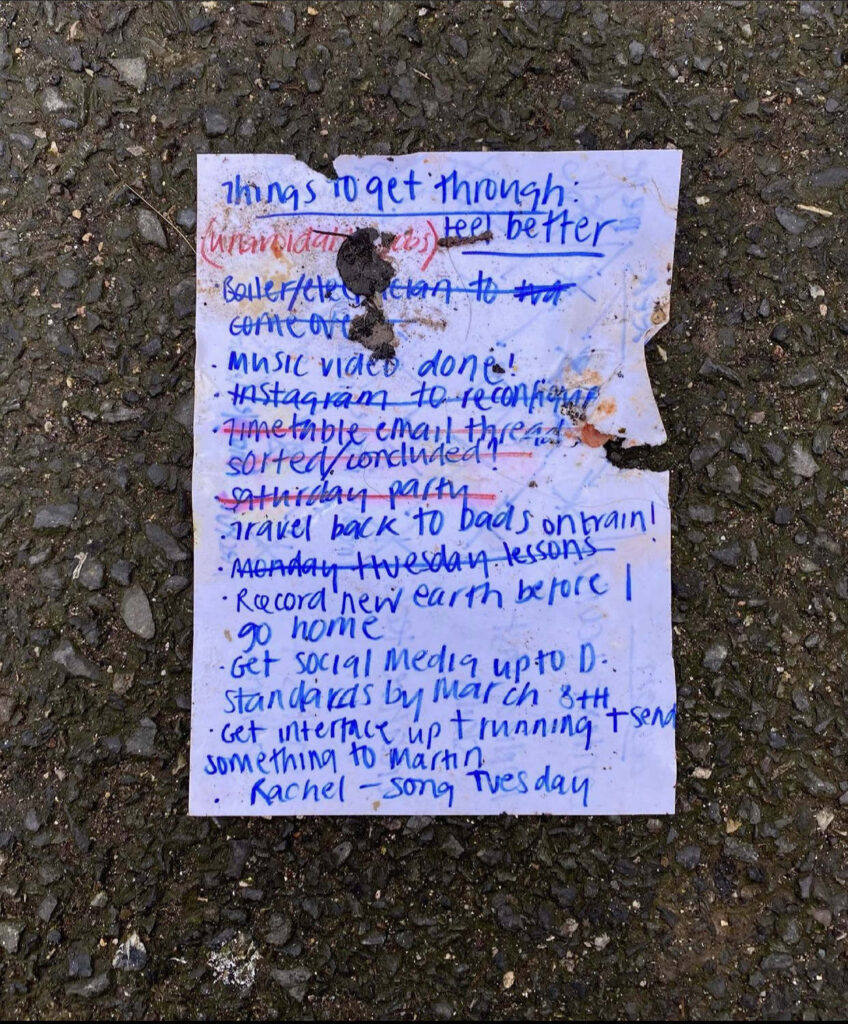 Things to get through:
feel better
Boiler/electrician to
come over
· Music video done!
· Instagram to reconfigure
· Timetable email thread
sorted/concluded!
· Saturday party
· Travel back to bads on train!
· Monday + Tuesday lessons
· Record new earth before I
go home
· Get social media up to D.
standards by March 8th
· Get interface up + running + send
something to Martin
· Rachel - song Tuesday